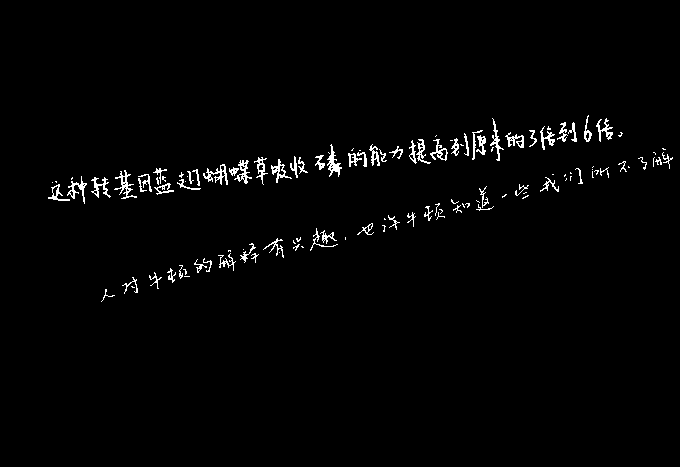 这种转基因蓝翅蝴蝶草吸收磷的能力提高到原来的3倍到6倍。
人对牛顿的解释有兴趣，也许牛顿知道一些我们所不了解